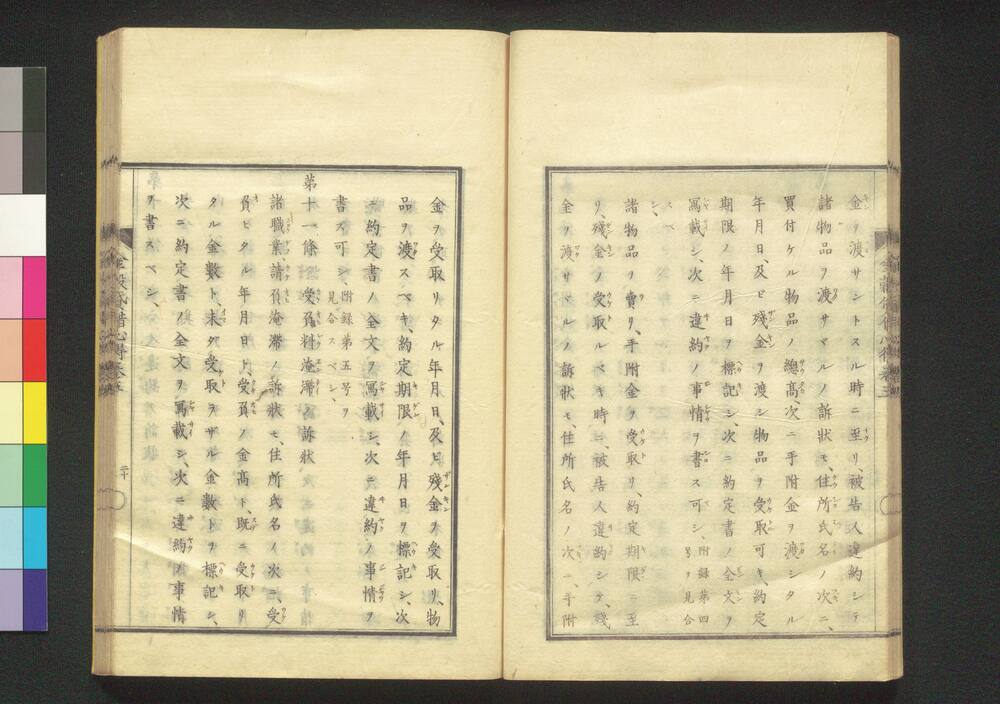 金ヲ渡サントスル時ニ至リ、被告人違約シテ
諸物品ヲ渡サヾルノ訴状モ、住所氏名ノ次ニ、
買付ケル物品ノ總髙、次ニ手附金ヲ渡シタル
年月日、及ビ殘金ヲ渡シ物品ヲ受取可キ、約定
期限ノ年月日ヲ標記シ、次ニ約定書ノ全文ヲ
寫載シ、次ニ違約ノ事情ヲ書ス可シ、附録第四
号ヲ見合
スベ
シ、
諸物品ヲ賣リ、手附金ヲ受取リ、約定期限ニ至
リ、殘金ノ受取ルベキ時ニ、被告人違約シテ、殘
金ヲ渡サヾルノ訴状モ、住所氏名ノ次ニ、手附
金ヲ受取リタル年月日、及ビ殘金ヲ受取リ、物
品ヲ渡スベキ、約定期限ノ年月日ヲ標記シ、次
ニ約定書ノ全文ヲ寫載シ、次ニ違約ノ事情ヲ
書ス可シ、附録第五号ヲ
見合スベシ、
第十一條 受負料淹滯ノ訴状
諸職業請負淹滯ノ訴状モ、住所氏名ノ次ニ受
負ヒタル年月日ト、受負ノ金高ト、既ニ受取リ
タル金數ト、未タ受取ラザル金數トヲ標記シ、
次ニ約定書ノ全文ヲ寫載シ、次ニ違約ノ事情
ヲ書スベシ、
二十